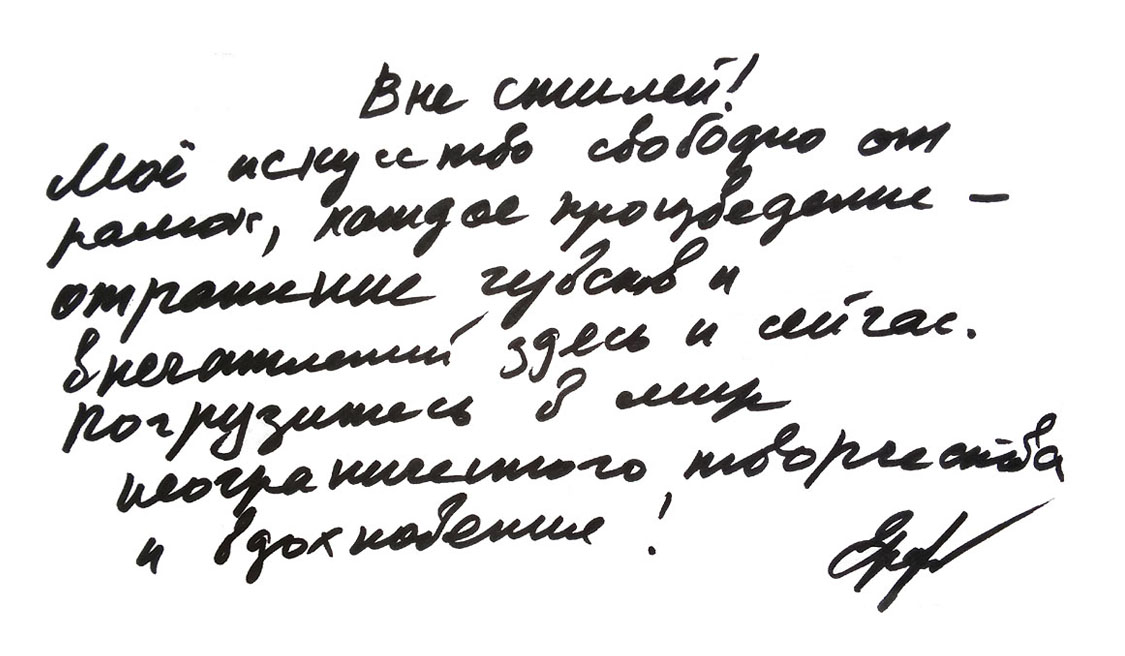 Вне стилей!
Моё искусство свободно от
рамок, каждое произведение —
отражение чувств и
впечатлений здесь и сейчас.
Погрузитесь в мир
неограниченного творчества
и вдохновение!